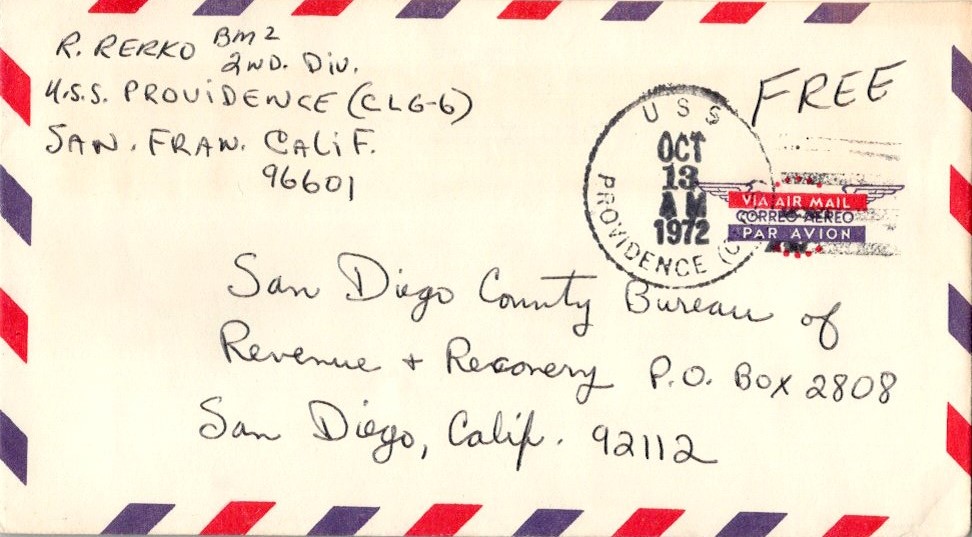 R. RERKO BM2
2ND. DIV.
U.S.S. PROVIDENCE (CLG-6)
SAN. FRAN. CALIF.
96601
FREE
USS
OCT
13
AM
1972
PROVIDENCE (C
VIA AIR MAIL
CORREO AEREO
PAR AVION
San Diego County Bureau of
Revenue + Recovery P.O. Box 2808
San Diego, Calif. 92112